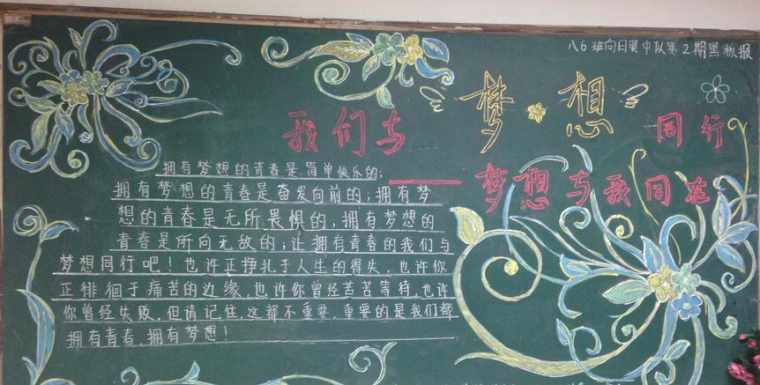 八6班向日葵中队第2期黑板报
我们与 梦·想 同行
梦想与我同在
拥有梦想的青春是简单快乐的;
拥有梦想的青春是奋发向前的;拥有梦
想的青春是无所畏惧的,拥有梦想的
青春是所向无敌的;让拥有青春的我们与
梦想同行吧!也许正挣扎于人生的得失,也许你
正徘徊于痛苦的边缘,也许你曾经苦苦等待,也许
你曾经失败,但请记住,这都不重要,重要的是我们都
拥有青春、拥有梦想!